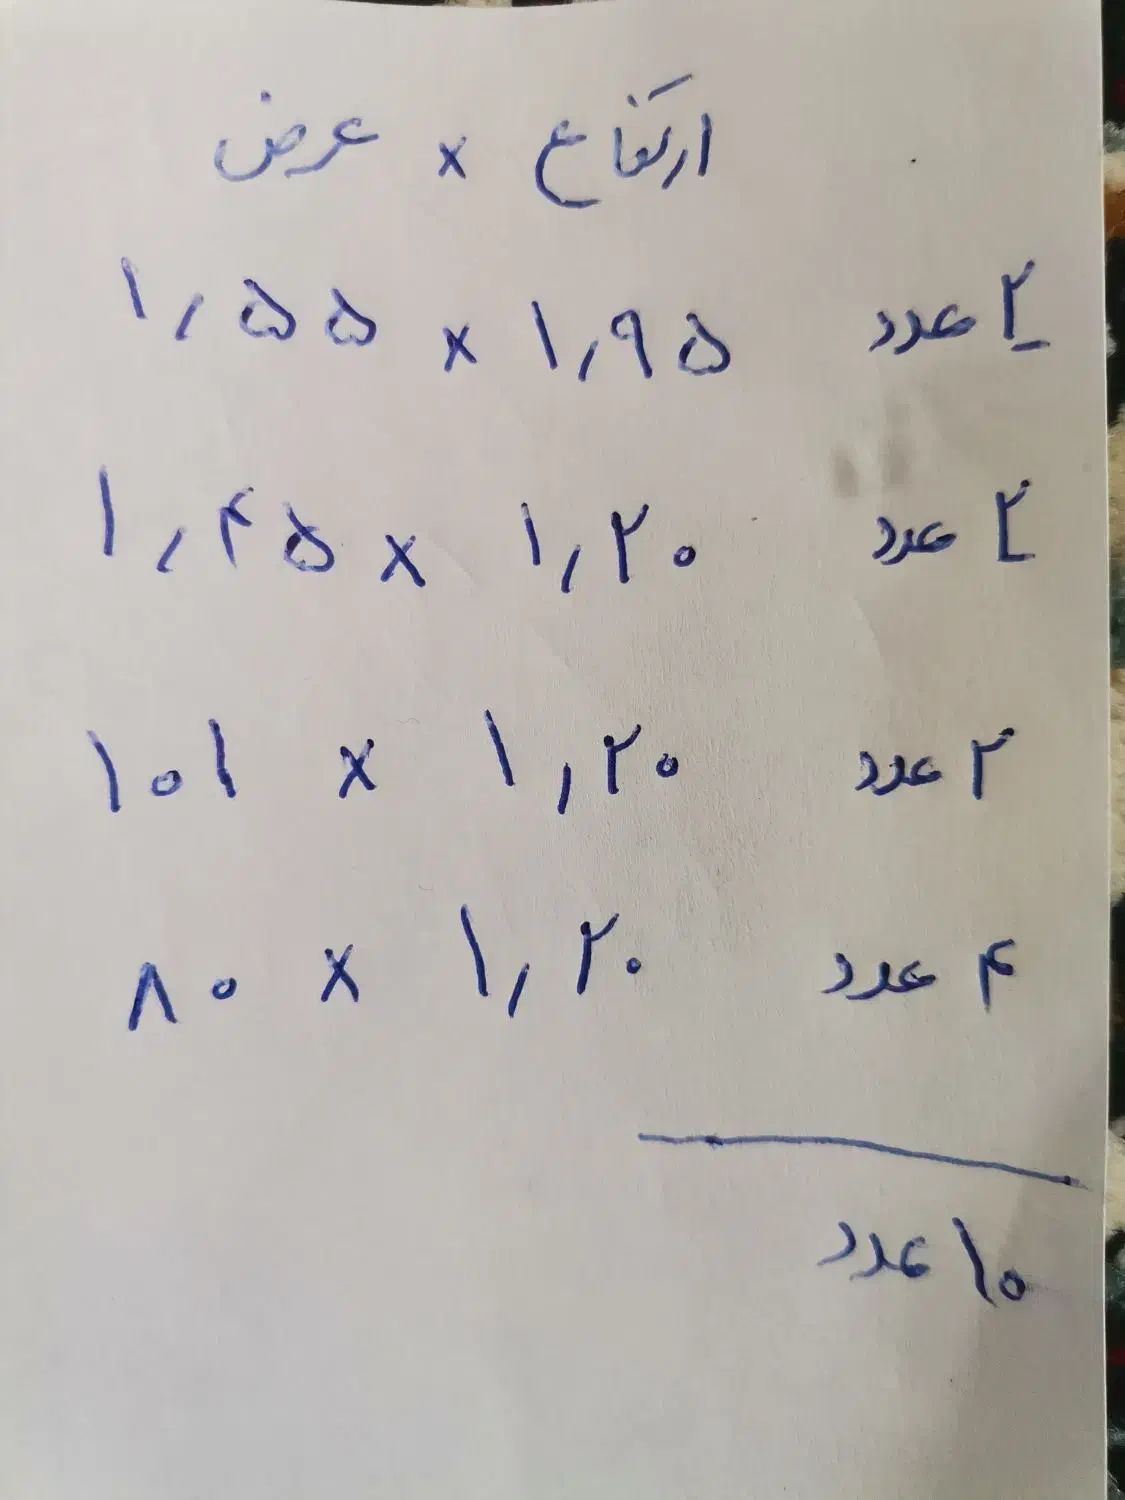 ارتفاع × عرض
۲ عدد ۱٫۹۵ × ۱٫۵۵
۲ عدد ۱٫۲۰ × ۱٫۴۵
۲ عدد ۱٫۲۰ × ۱۰۱
۴ عدد ۱٫۲۰ × ۸۰
۱۰ عدد